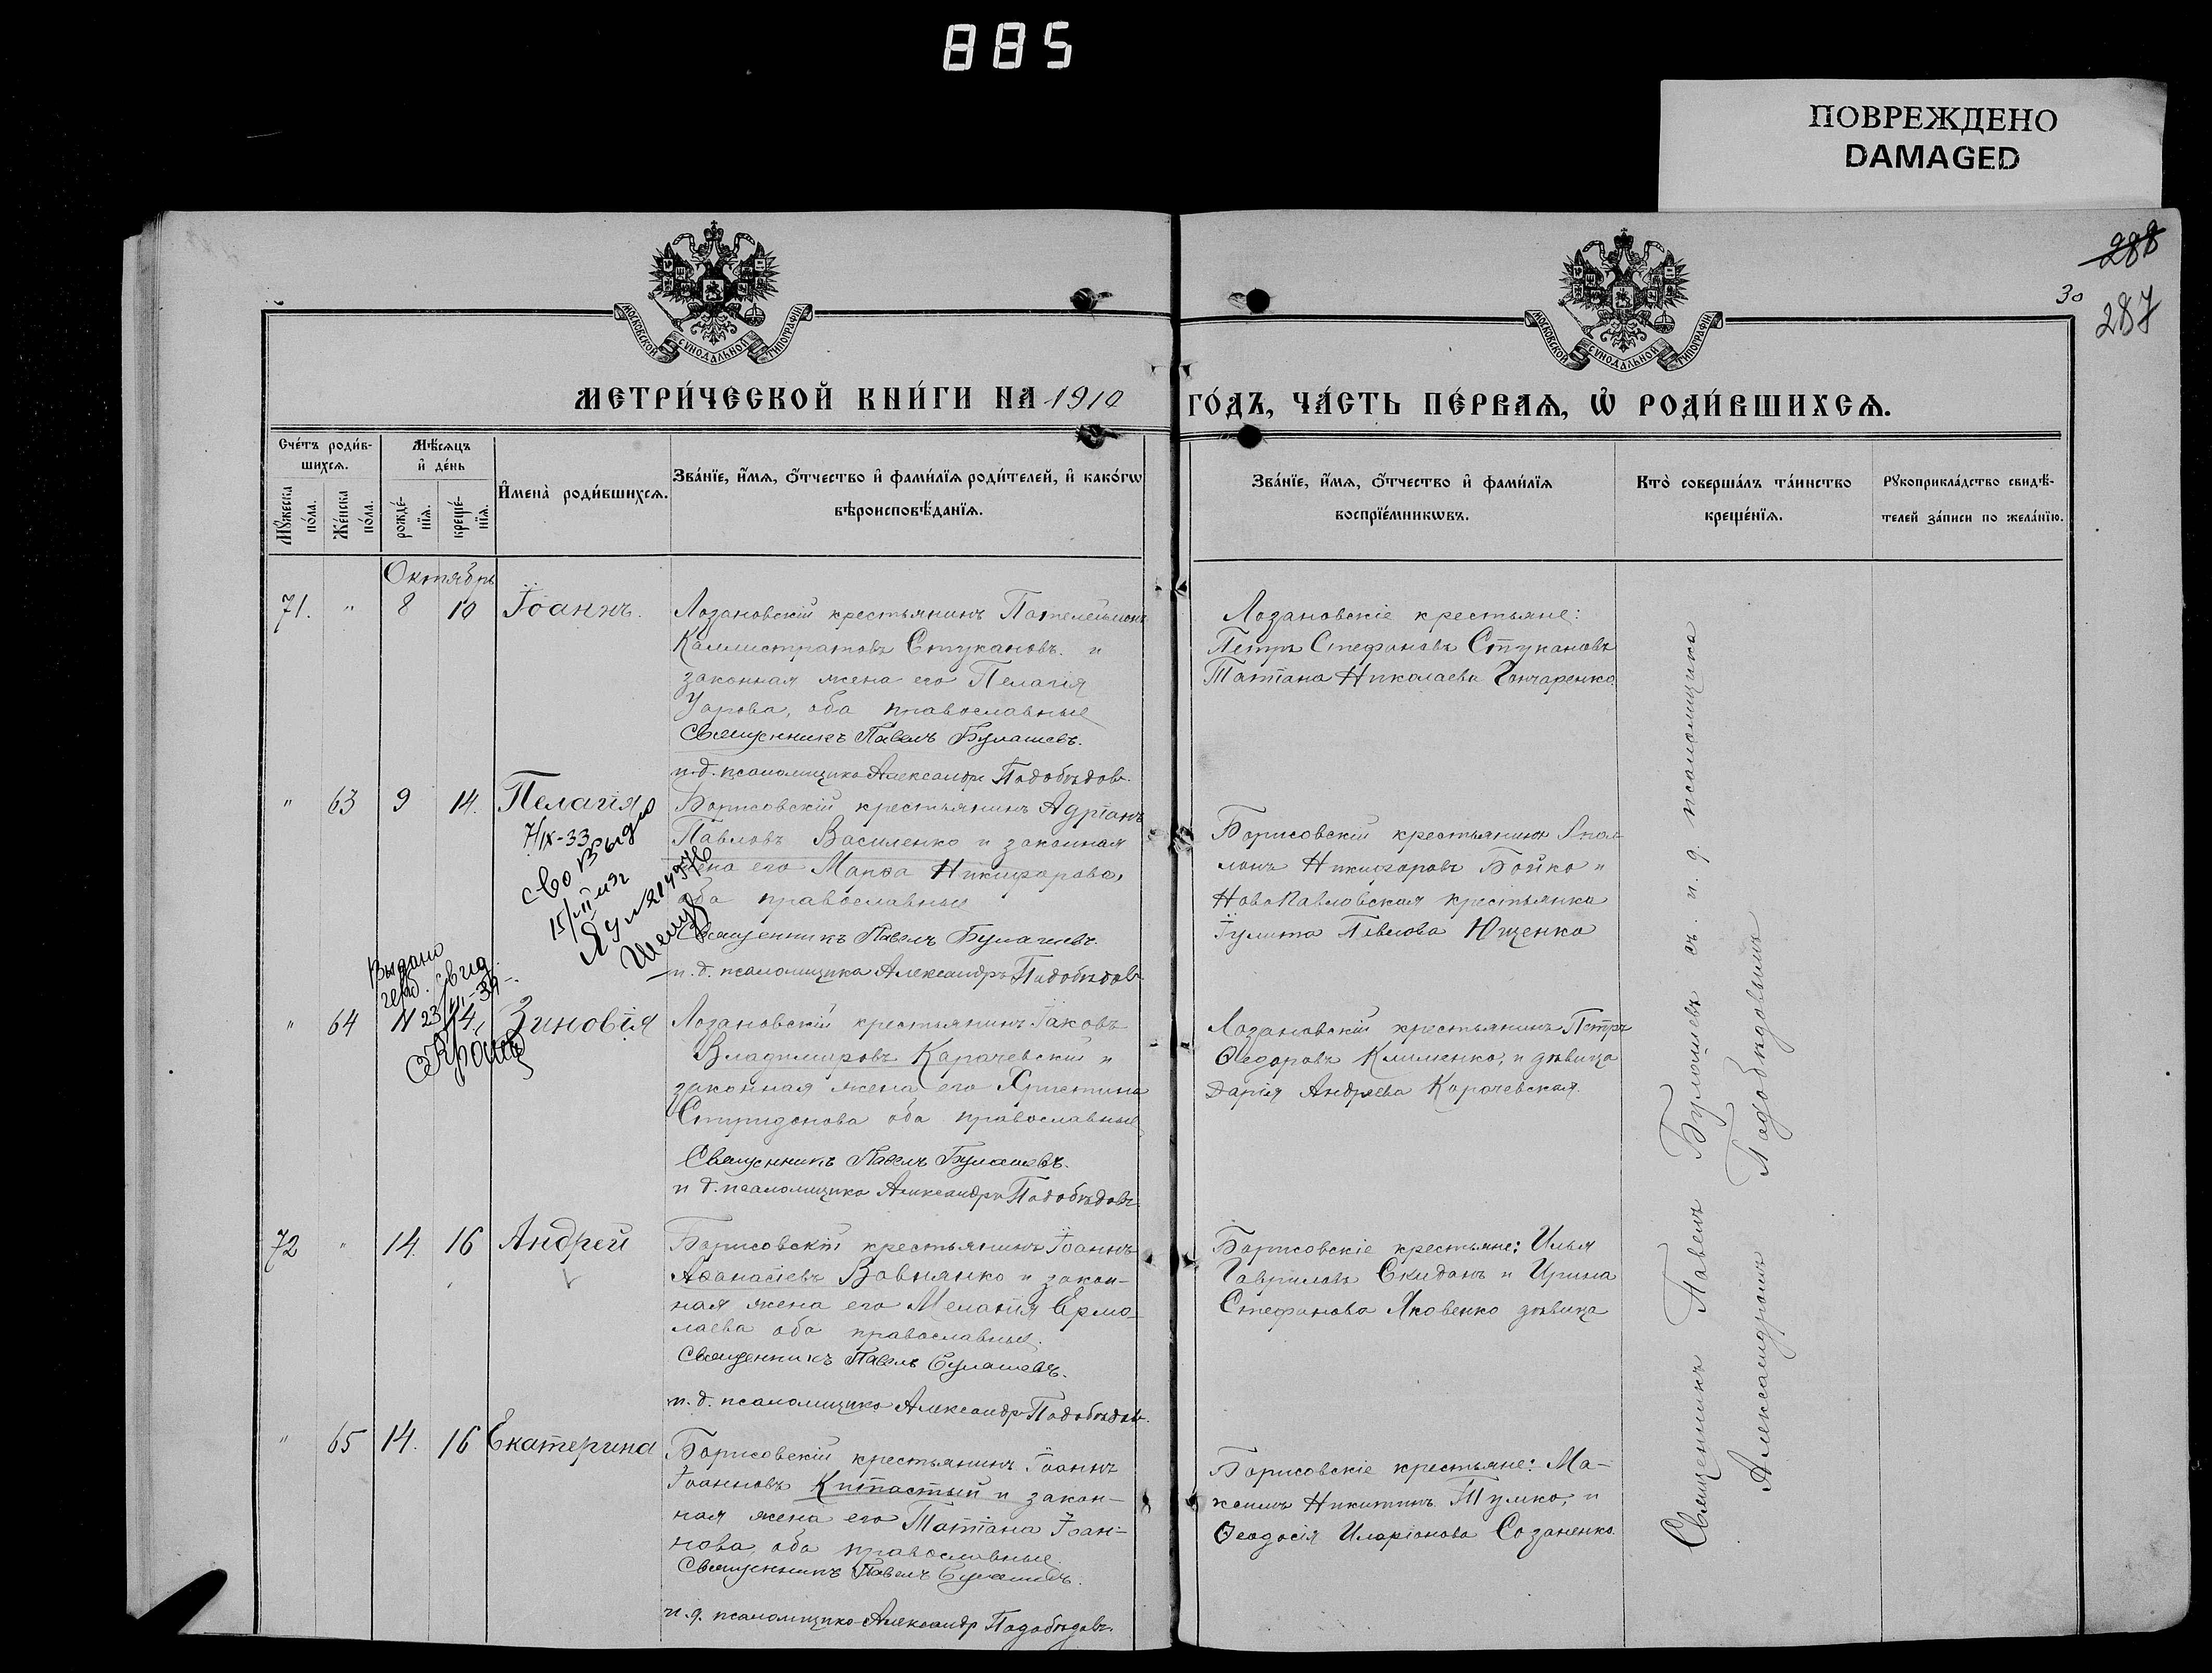 885
ПОВРЕЖДЕНО
DAMAGED
288
30
287
МОСКОВСКОЙ СѴНОДАЛЬНОЙ ТИПОГРАФІИ
МОСКОВСКОЙ СѴНОДАЛЬНОЙ ТИПОГРАФІИ
МЕТРИ́ЧЕСКОЙ КНИ́ГИ НА 1910 ГО́ДЪ, ЧА́СТЬ ПЕ́РВАѦ, Ѡ РОДИ́ВШИХСѦ.
Сче́тъ роди́вшихсѧ.
Мꙋ́жеска по́ла.
Же́нска по́ла.
Мѣ́сѧцъ и҆ де́нь
рожде́нїѧ.
креще́нїѧ.
И҆мена̀ роди́вшихсѧ.
Зва́нїе, и҆́мѧ, ѻ҆́тчество и҆ фами́лїѧ роди́телей, и҆ како́гѡ
вѣроисповѣ́данїѧ.
Зва́нїе, и҆́мѧ, ѻ҆́тчество и҆ фами́лїѧ
воспрїе́мникѡвъ.
Кто̀ соверша́лъ та́инство
креще́нїѧ.
Рꙋкоприкла́дство свидѣ́-
телей за́писи по жела́нїю.
Октябрь
71. " 8 10 Іоаннъ.
Лозановскій крестьянинъ Пателеймонъ
Каллистратовъ Стукановъ и
законная жена его Пелагія
Уарова, оба православные
Священникъ Павелъ Булашевъ.
и. д. псаломщика Александръ Подобѣдовъ.
Лозановскіе крестьяне:
Петръ Стефановъ Стукановъ
Татіана Николаева Гончаренко.
" 63 9 14. Пелагія
7/IX-33
Борисовскій крестьянинъ Адріанъ
Павловъ Василенко и законная
жена его Марѳа Никифорова,
оба православные
Священникъ Павелъ Булашевъ.
и. д. псаломщика Александръ Подобѣдовъ.
Борисовскій крестьянинъ Апол-
лонъ Никифоровъ Бойко и
НовоПавловская крестьянка
Іулита Павлова Ющенко
Выдано
свид.
" 64 14 Зиновія
Лозановскій крестьянинъ Іаковъ
Владимировъ Карачевскій и
законная жена его Христина
Спиридонова оба православные
Священникъ Павелъ Булашевъ.
и д. псаломщика Александръ Подобѣдовъ.
Лозановскій крестьянинъ Петръ
Ѳедоровъ Клименко, и дѣвица
Дарія Андреева Карачевская.
72 " 14. 16 Андрей
Борисовскій крестьянинъ Іоаннъ
Аѳанасіевъ Вовнянко и закон-
ная жена его Меланія Ермо-
лаева оба православные.
Священникъ Павелъ Булашевъ.
и. д. псаломщика Александръ Подобѣдовъ.
Борисовскіе крестьяне: Илья
Гавриловъ Скиданъ и Ирина
Стефанова Яковенко дѣвица
" 65 14. 16 Екатерина
Борисовскій крестьянинъ Іоаннъ
Іоанновъ Китастый и закон-
ная жена его Татіана Іоан-
нова, оба православные.
Священникъ Павелъ Булашевъ.
и. д. псаломщика Александръ Подобѣдовъ.
Борисовскіе крестьяне: Ма-
ксимъ Никитинъ Тумко, и
Ѳеодосія Иларіонова Созаненко.
Священникъ Павелъ Булашевъ съ и. д. псаломщика
Александромъ Подобѣдовымъ